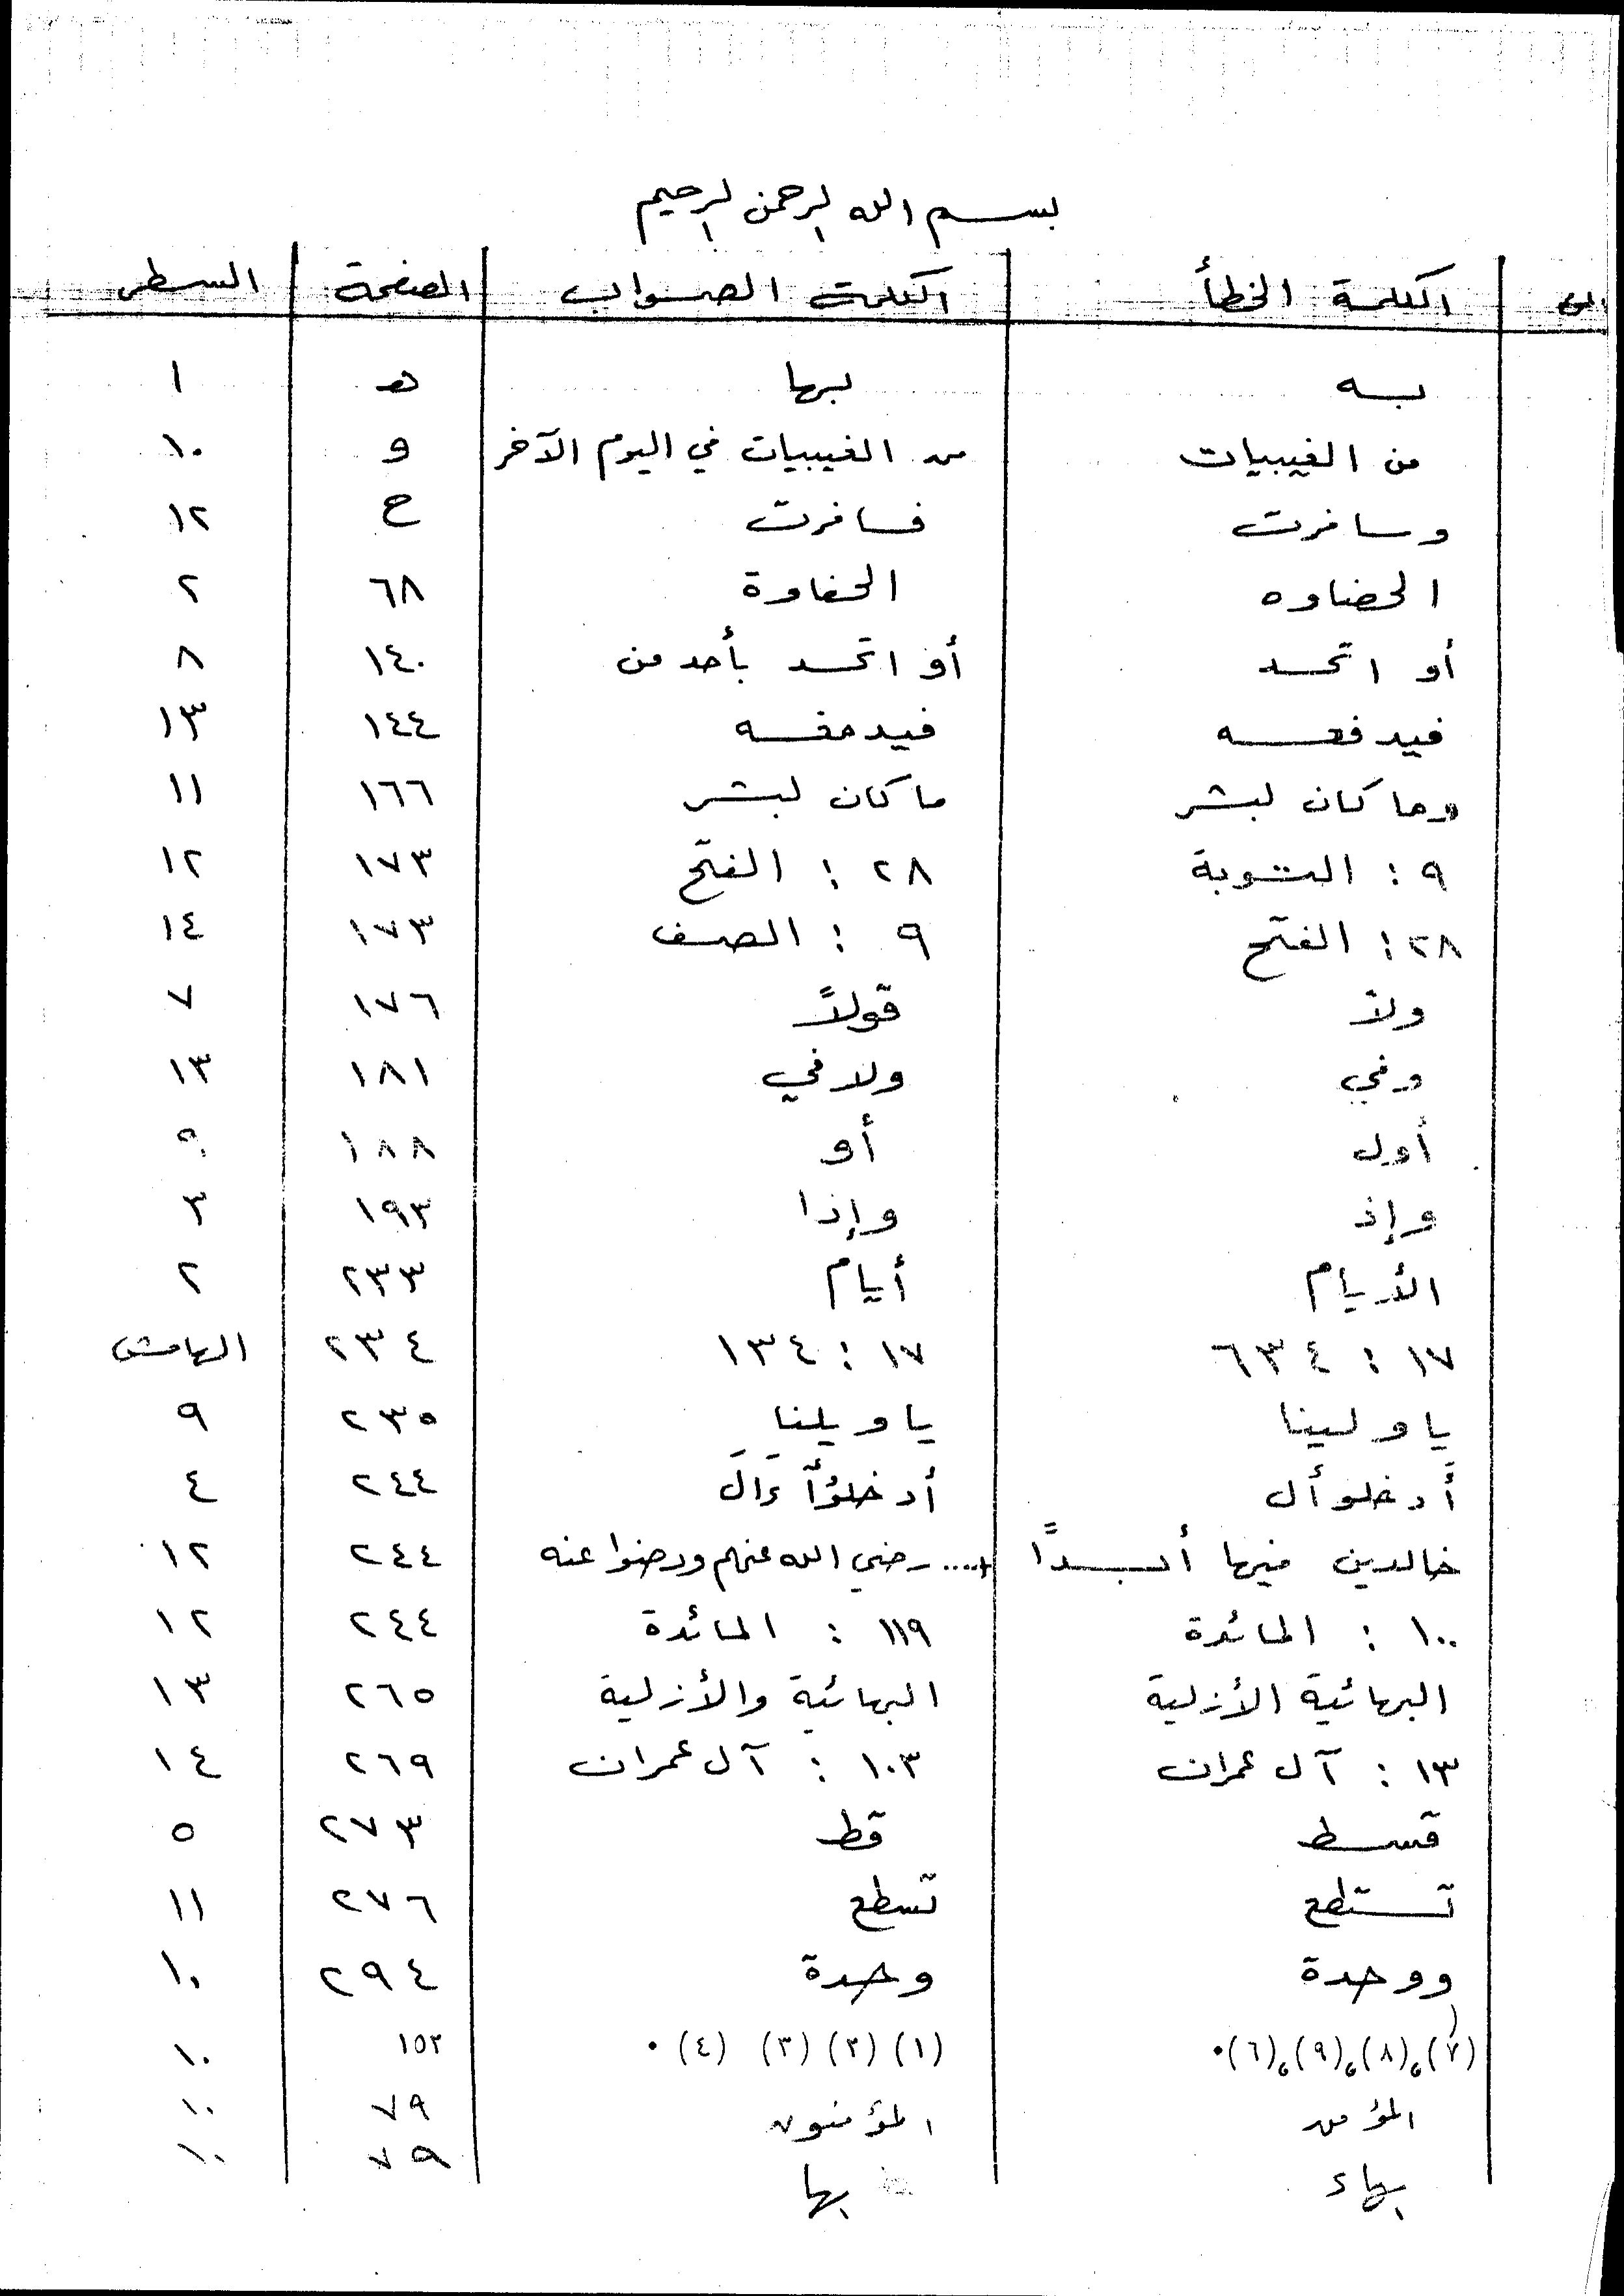 بسم الله الرحمن الرحيم
الكلمة الخطأ الكلمة الصواب الصفحة السطر
به بها هـ ١
من الغيبيات من الغيبيات في اليوم الآخر و ١٠
وسافرت فسافرت ح ١٢
الحضاوه الحفاوة ٦٨ ٢
أو اتحد أو اتحد بأحد من ١٤٠ ٨
فيدفعه فيدمغه ١٤٤ ١٣
وما كان لبشر ما كان لبشر ١٦٦ ١١
٩ : التوبة ٢٨ : الفتح ١٧٣ ١٢
٢٨ : الفتح ٩ : الصف ١٧٣ ١٤
ولا قولاً ١٧٦ ٧
وفي ولا في ١٨١ ١٣
أول أو ١٨٨
وإذ وإذا ١٩٣ ٣
الأيام أيام ٢٣٣ ٢
١٧ : ٦٣٤ ١٧ : ١٣٤ ٢٣٤ الهامش
يا ولينا يا ويلنا ٢٣٥ ٩
أدخلوأل أدخلوا آل ٢٤٤ ٤
خالدين فيها أبداً .... رضي الله عنهم ورضوا عنه ٢٤٤ ١٢
١٠٠ : المائدة ١١٩ : المائدة ٢٤٤ ١٢
البهائية الأزلية البهائية والأزلية ٢٦٥ ١٣
١٣ : آل عمران ١٠٣ : آل عمران ٢٦٩ ١٤
قسط قط ٢٧٣ ٥
تستطع تسطع ٢٧٦ ١١
ووحدة وحدة ٢٩٤ ١٠
(٧)،(٨)،(٩)،(٦). (١) (٢) (٣) (٤) . ١٥٢ ١٠
المؤمن المؤمنون ٧٩ ١٠
بهاء بها ٧٩ ١٠